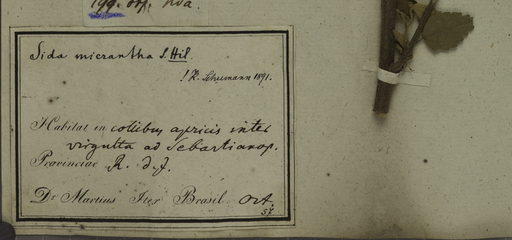 Sida micrantha S. Hil.
! K. Schumann 1891.
Habitat in collibus apricis inter
virgulta ad Sebastianop.
Provinciae R. d. J.
Dr Martius Iter Brasil. Oct.